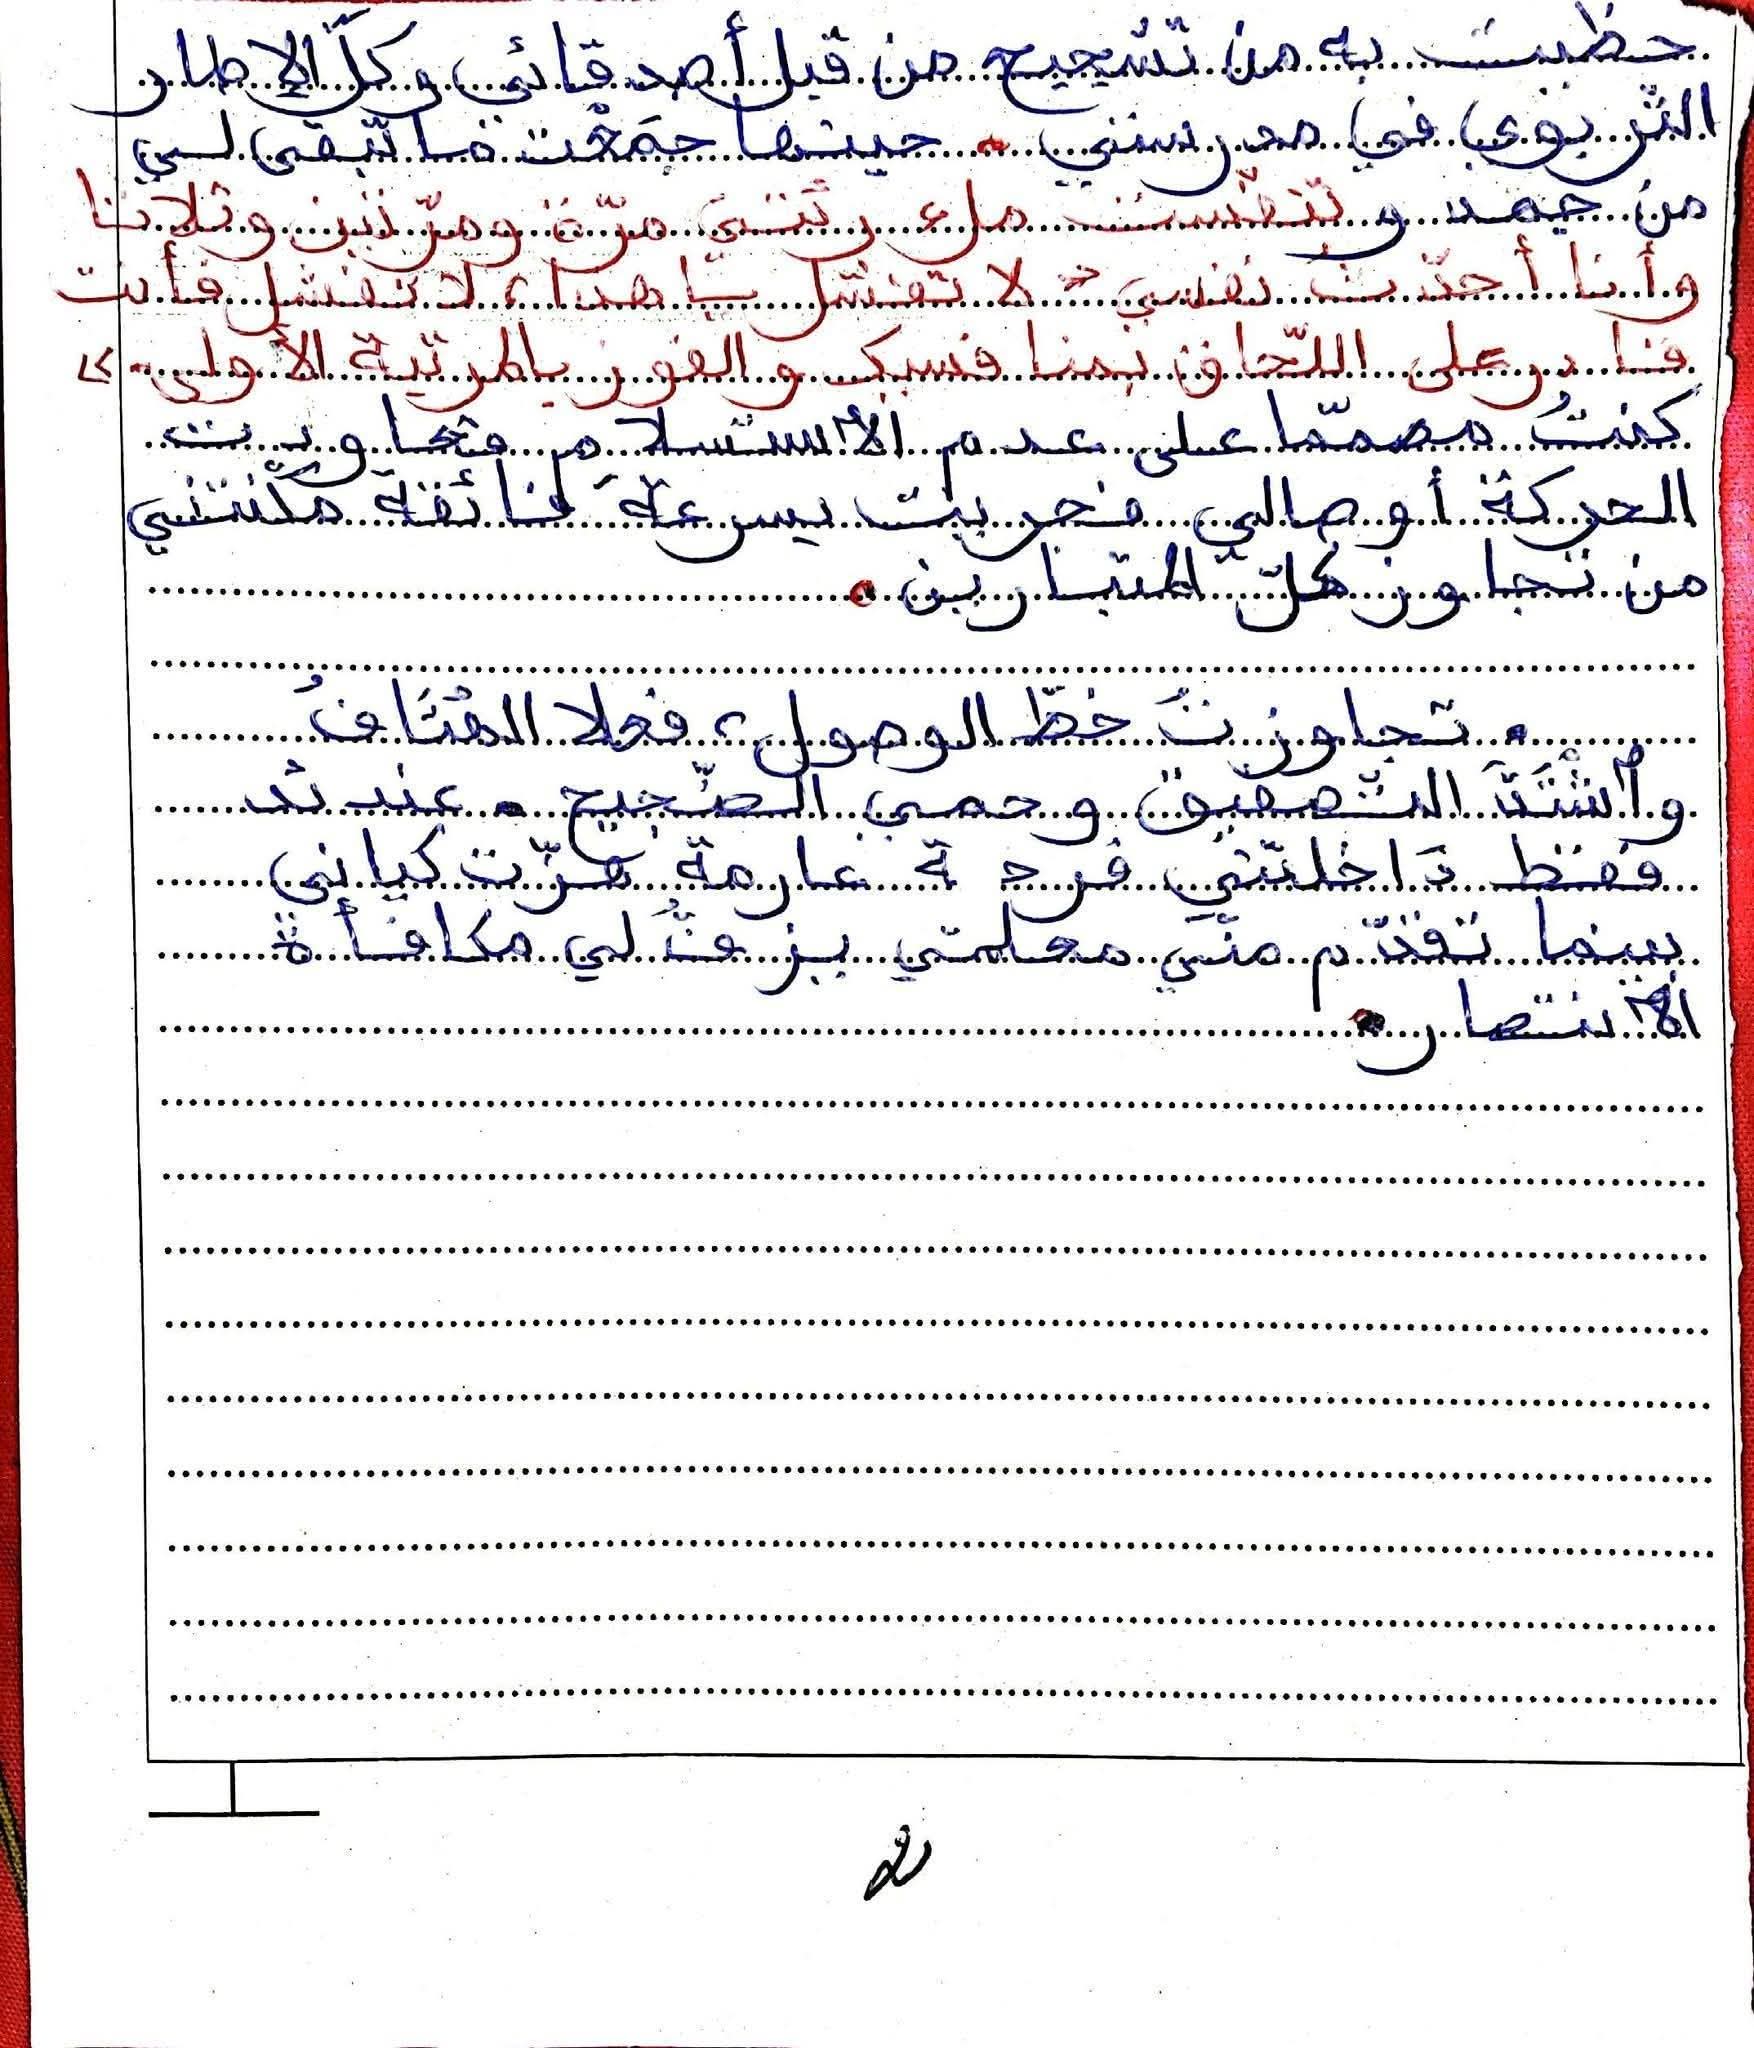 حظيت به من تشجيع من قبل أصدقائي وكلّ الإطار
التّربوي في مدرستي. حينها جمّعت ما تبقى لي
من جهد و تنفّست ملء رئتيّ مرّة ومرّتين وثلاثا
وأنا أحدّث نفسي « لا تفشل يا هذا، لا تفشل فأنت
قادر على اللّحاق بمنافسيك والفوز بالمرتبة الأولى. »
كنتُ مصمّما على عدم الاستسلام فعاودت
الحركة أوصالي فجريت بسرعة فائقة مكّنتني
من تجاوز كلّ المتبارين.
تجاوزتُ خطّ الوصول، فعلا الهُتَافُ
واشْتَدَّ التّصفيق وحمي الضّجيج. عندئذ
فقط دَاخلتني فرحة عارمة هزّت كياني
بينما تقدّم منّي معلمتي يزفّ لي مكافأة
الانتصار.